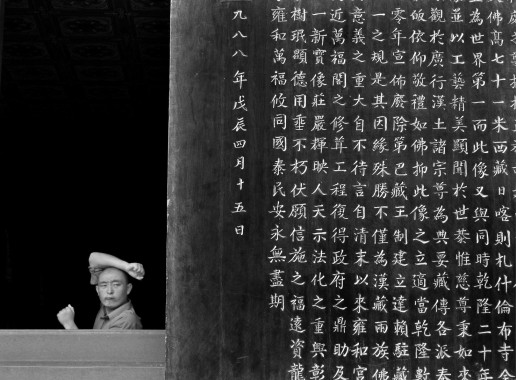 佛高七十一米西藏日喀則札什倫布寺全
為世界第一而此像又與同時乾隆二十年
並以工藝精美顯聞於世恭惟慈尊秉如來
觀於廣行漢土諸宗尊為典要藏傳各派奉
皈依仰敬禮如佛抑此像之立適當乾隆數
零年宣佈廢除第巴藏王制建立達賴駐藏
一之規是其因緣殊勝不僅為漢藏兩族佛
意義之重大自不待言自清末以來雍和宮
近萬福閣之修葺工程復得政府之鼎助及
一新寶像莊嚴輝映人天示法化之重興彰
樹珉顯德用垂不朽伏願信施之福遠資龍
雍和萬福攸同國泰民安永無盡期
九八八年戊辰四月十五日